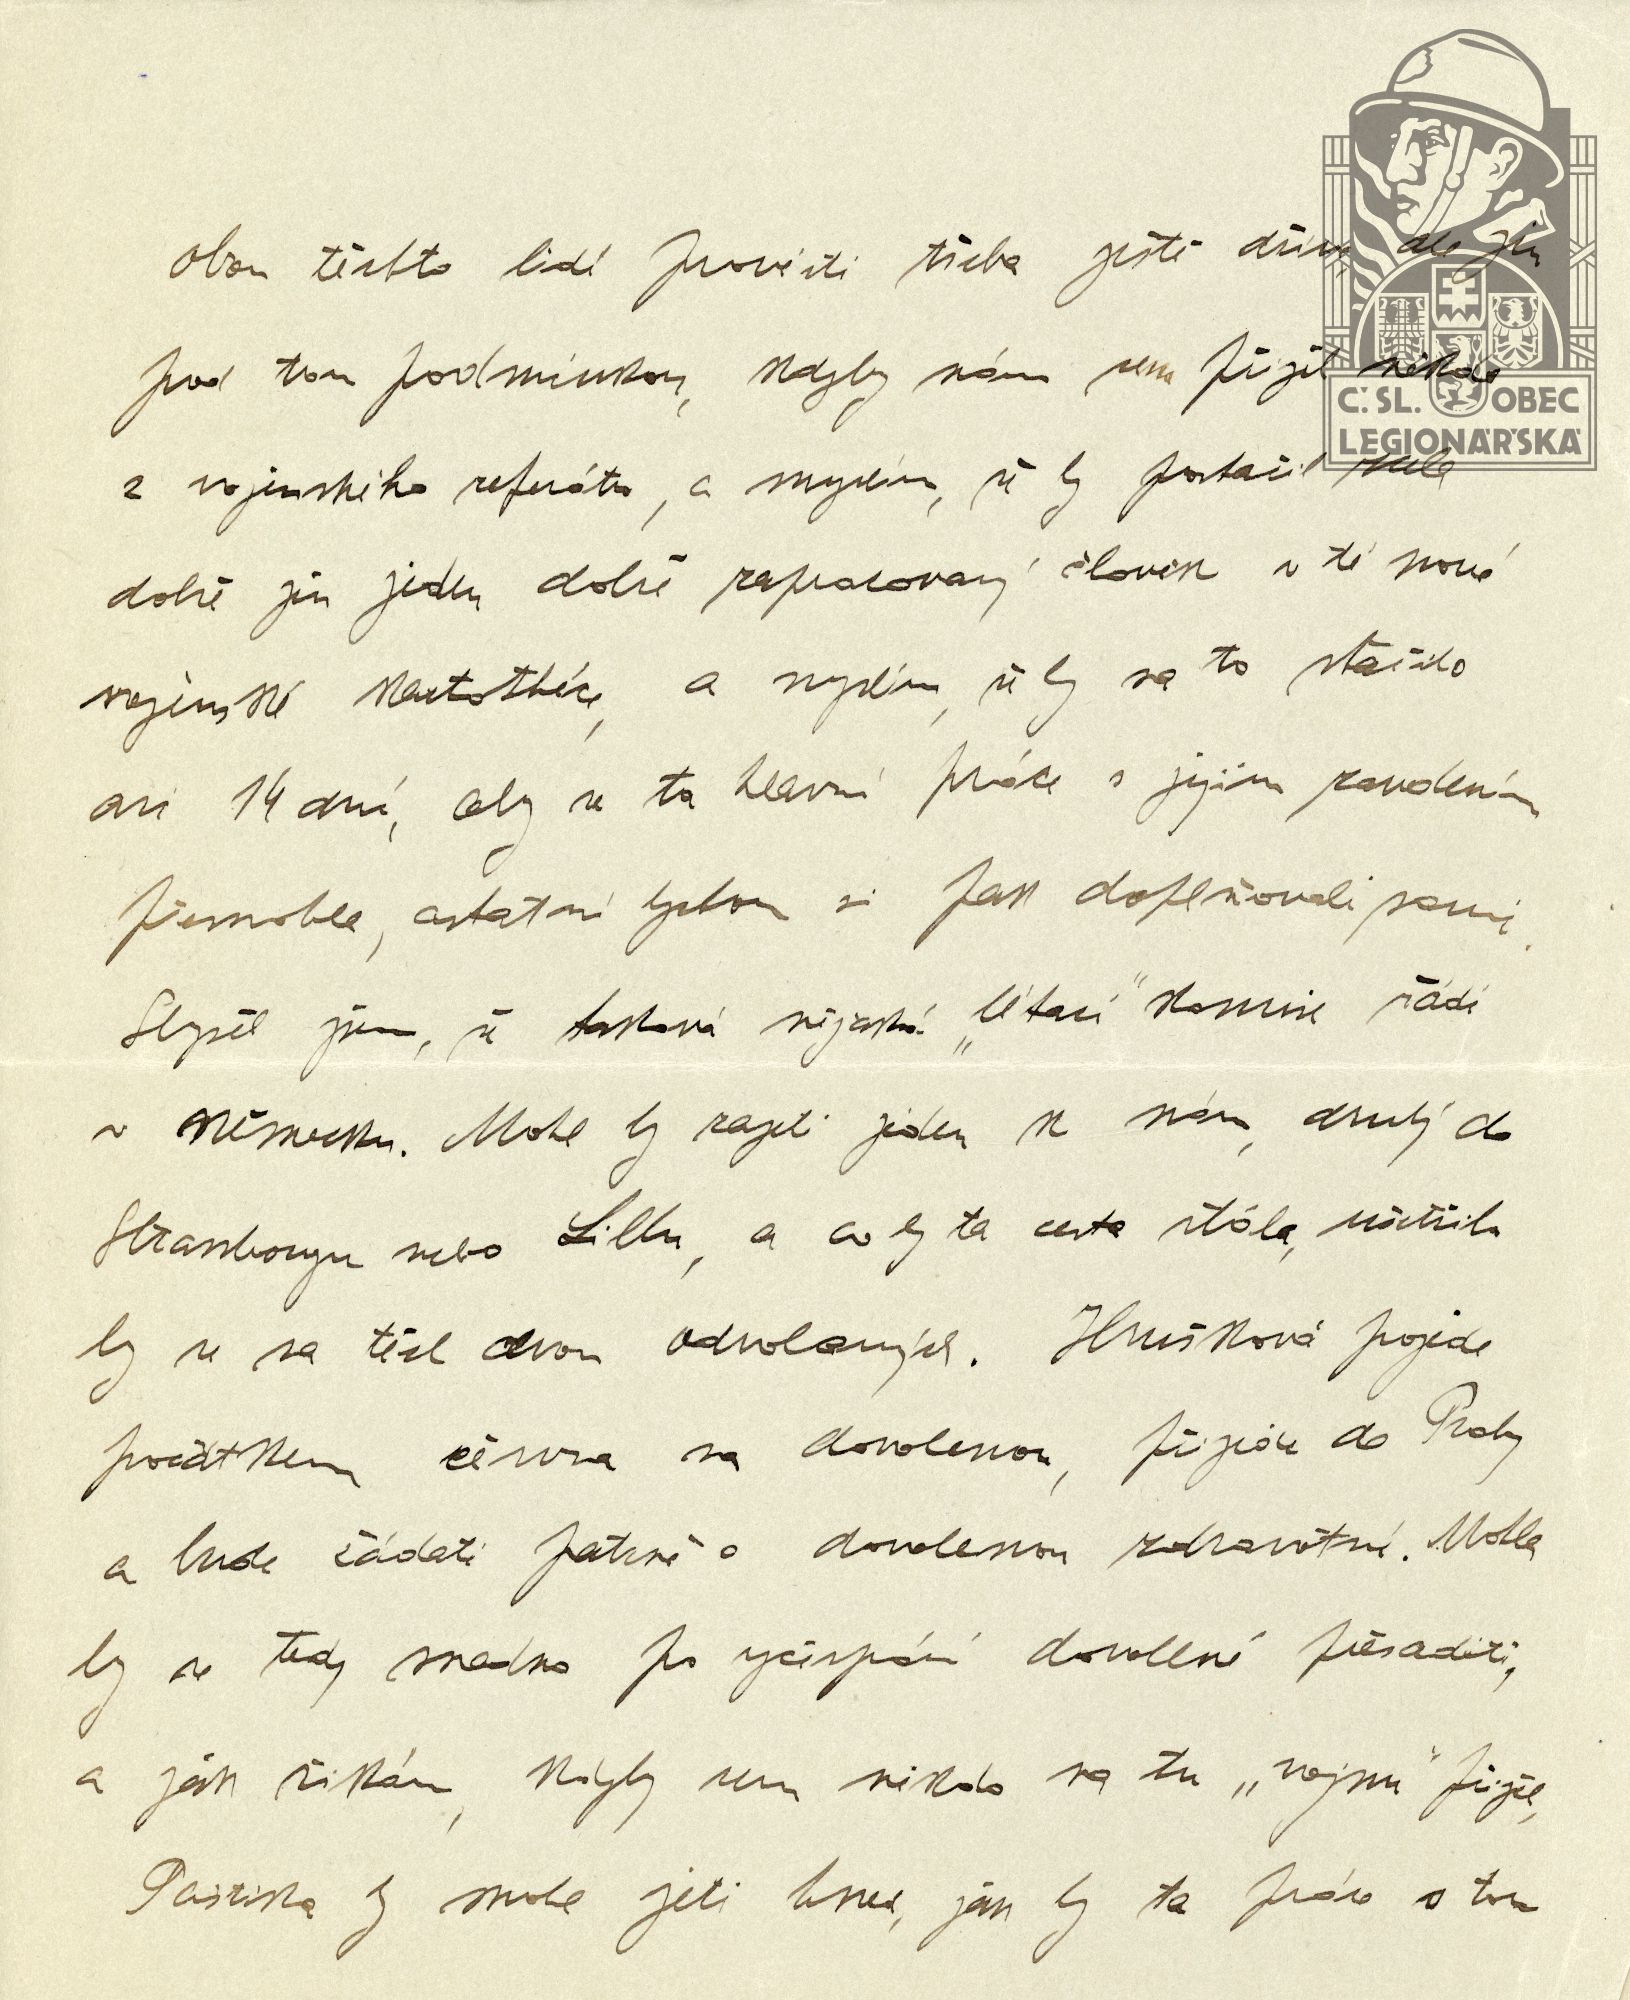 obou těchto lidí provésti třeba ještě dříve, ale jen
pod tou podmínkou, kdyby nám sem přijel někdo
z vojenského referátu, a myslím, že by postačil zcela
dobře jen jeden dobře zapracovaný člověk v té nové
vojenské kartothéce, a myslím, že by na to stačilo
asi 14 dní, aby se ta hlavní práce s jejím zavedením
přemohla, ostatní bychom si pak doplňovali sami.
Slyšel jsem, že taková nějaká „létací" komise řádí
v Německu. Mohl by zajeti jeden k nám, druhý do
Štrassbourgu nebo Lillu, a co by ta cesta stála, ušetřilo
by se na těch dvou odvolaných. Hrušková pojede
počátkem června na dovolenou, přijede do Prahy
a bude žádati patrně o dovolenou zdravotní. Mohla
by se tedy snadno po vyčerpání dovolené přesaditi,
a jak říkám, kdyby sem někdo na tu „vojnu" přijel,
by mohl jeti hned, jak by ta práce s tou
Č. SL. OBEC
LEGIONÁŘSKÁ